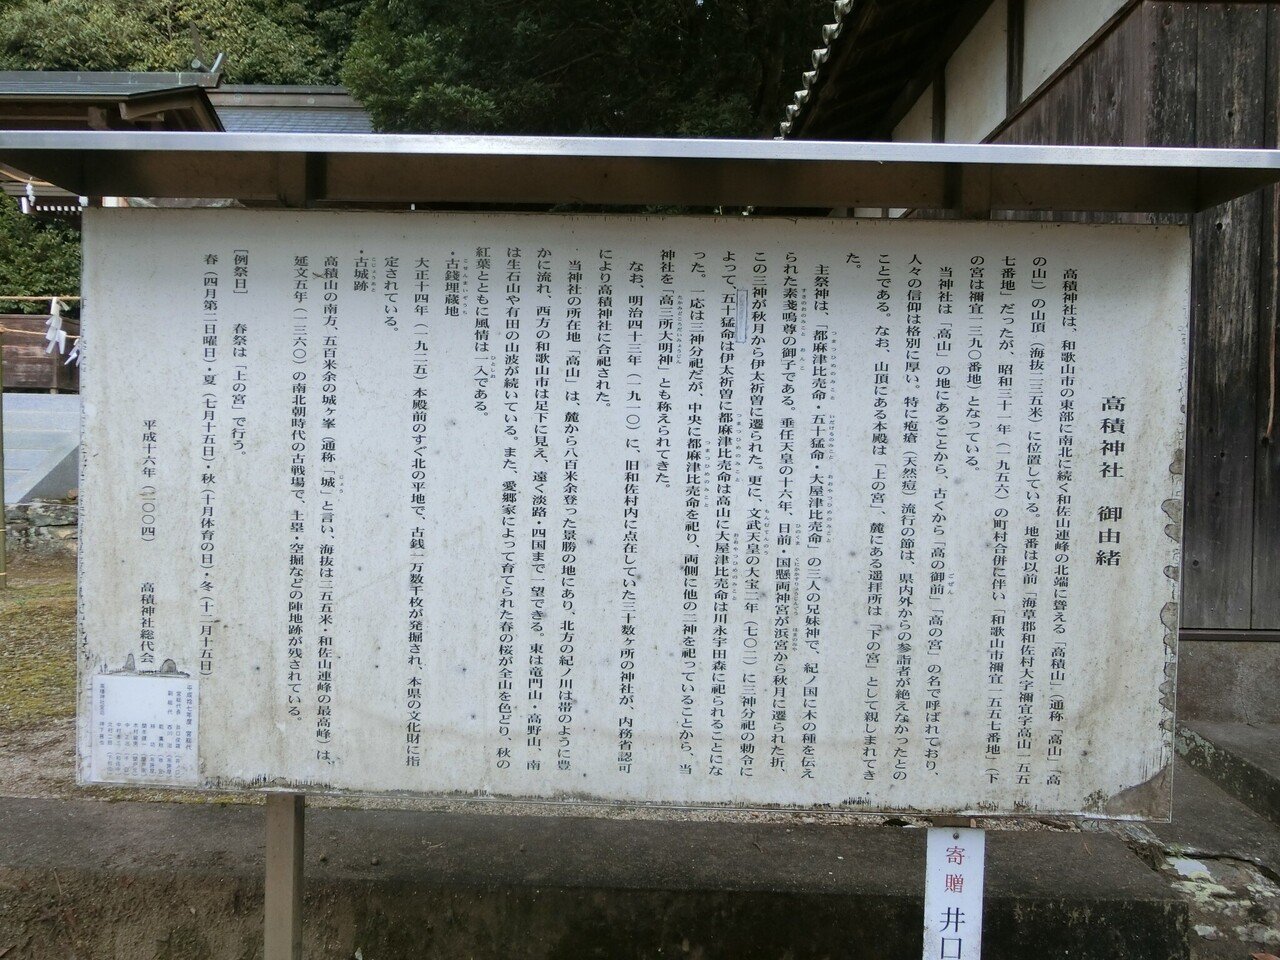 高積神社　御由緒
高積神社は、和歌山市の東部に南北に続く和佐山連峰の北端に聳える「高積山」（通称「高山」「高
の山」）の山頂（海抜二三五米）に位置している。地番は以前「海草郡和佐村大字禰宜字高山一五五
七番地」だったが、昭和三十一年（一九五六）の町村合併に伴い「和歌山市禰宜一五五七番地」（下
の宮は禰宜一三九〇番地）となっている。
当神社は「高山」の地にあることから、古くから「高の御前」「高の宮」の名で呼ばれており、
人々の信仰は格別に厚い。特に疱瘡（天然痘）流行の節は、県内外からの参詣者が絶えなかったとの
ことである。なお、山頂にある本殿は「上の宮」、麓にある遥拝所は「下の宮」として親しまれてき
た。
主祭神は、「都麻津比売命・五十猛命・大屋津比売命」の三人の兄妹神で、紀ノ国に木の種を伝え
られた素戔嗚尊の御子である。垂仁天皇の十六年、日前・国懸両神宮が浜宮から秋月に遷られた折、
この三神が秋月から伊太祁曽に遷られた。更に、文武天皇の大宝二年（七〇二）に三神分祀の勅令に
よって、五十猛命は伊太祁曽に都麻津比売命は高山に大屋津比売命は川永宇田森に祀られることにな
った。一応は三神分祀だが、中央に都麻津比売命を祀り、両側に他の二神を祀っていることから、当
神社を「高三所大明神」とも称えられてきた。
なお、明治四十三年（一九一〇）に、旧和佐村内に点在していた三十数ヶ所の神社が、内務省認可
により高積神社に合祀された。
当神社の所在地「高山」は、麓から八百米余登った景勝の地にあり、北方の紀ノ川は帯のように豊
かに流れ、西方の和歌山市は足下に見え、遠く淡路・四国まで一望できる。東は竜門山・高野山、南
は生石山や有田の山波が続いている。また、愛郷家によって育てられた春の桜が全山を色どり、秋の
紅葉とともに風情は一入である。
・古銭埋蔵地
大正十四年（一九二五）本殿前のすぐ北の平地で、古銭一万数千枚が発掘され、本県の文化財に指
定されている。
・古城跡
高積山の南方、五百米余の城ヶ峯（通称「城」と言い、海抜は二五五米・和佐山連峰の最高峰）は、
延文五年（一三六〇）の南北朝時代の古戦場で、土塁・空掘などの陣地跡が残されている。
［例祭日］　春祭は「上の宮」で行う。
春（四月第二日曜日）・夏（七月十五日）・秋（十月体育の日）・冬（十二月十五日）
平成十六年（二〇〇四）　高積神社総代会
平成拾七年度　宮総代
寄贈　井口